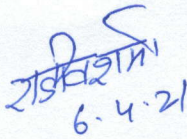 राजीव शर्मा
6.4.21